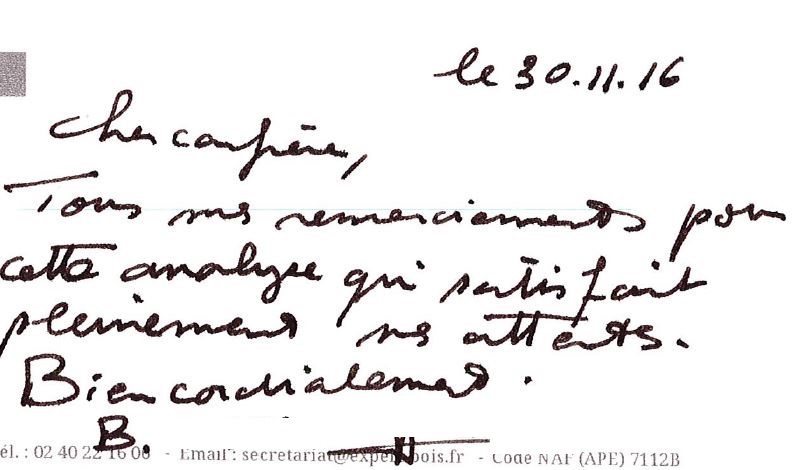 le 30.11.16
Cher confrère,
Tous mes remerciements pour
cette analyse qui satisfait
pleinement nos attentes.
Bien cordialement.
B.
él. : 02 40 22 16 06 - Email : secretariat@expertbois.fr - Code NAF (APE) 7112B